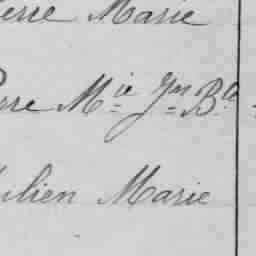 erre Marie
erre Mie Jn Bte
ulien Marie